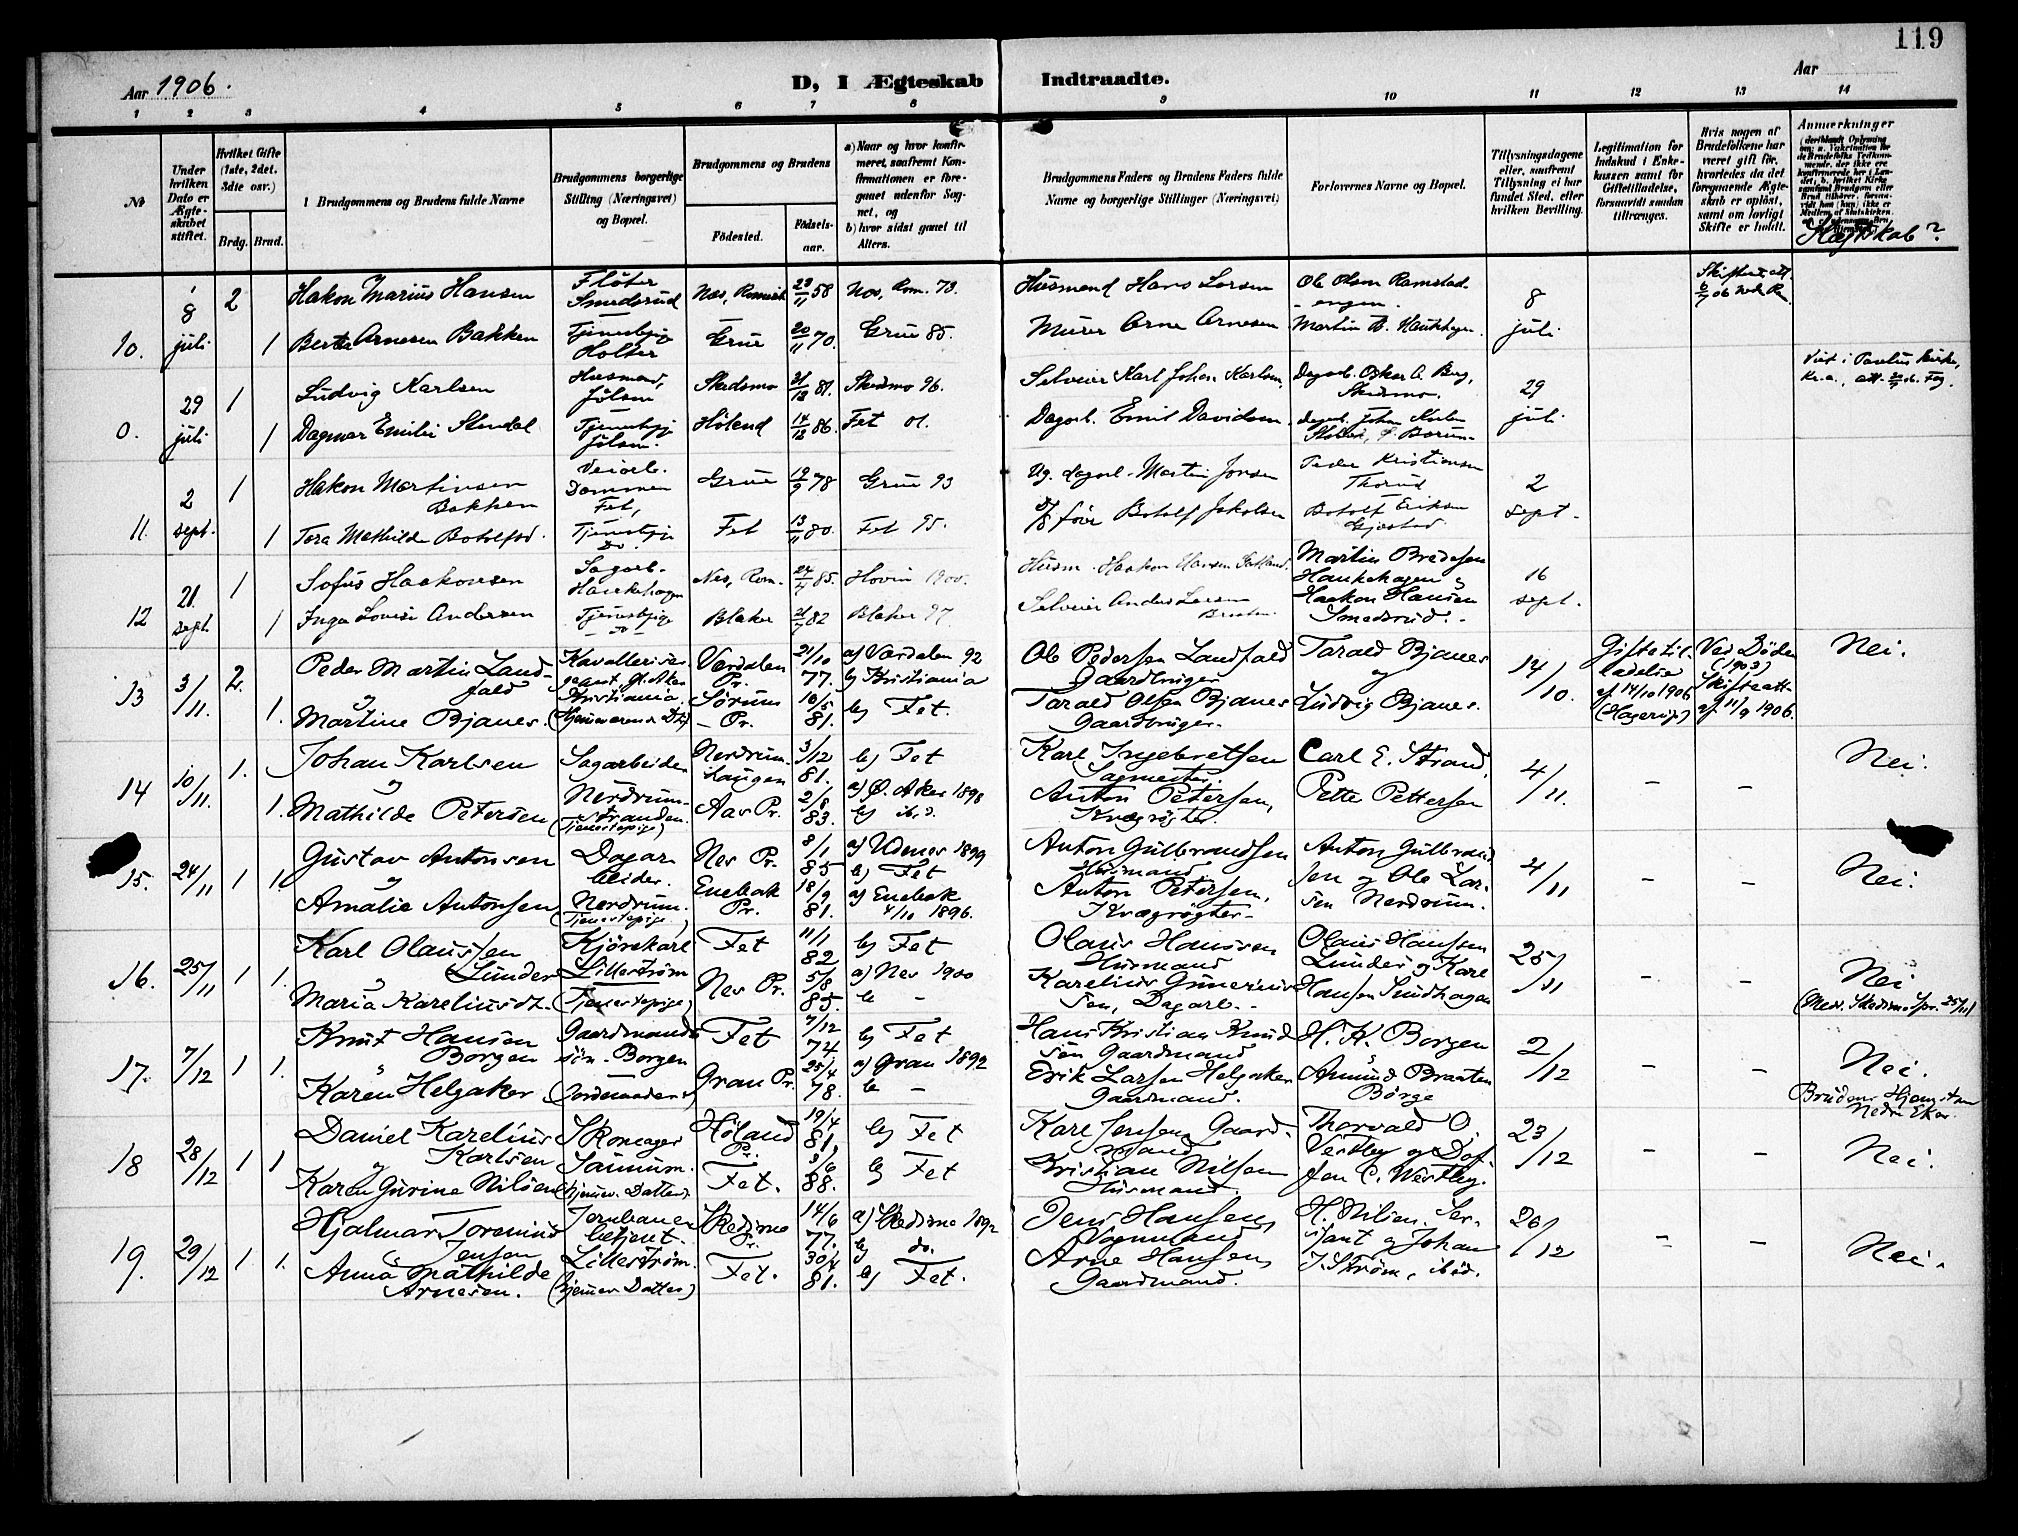 119
Aar 1906.
D, I Ægteskab Indtraadte.
Aar
1 2 3 4 5 6 7 8 9 10 11 12 13 14
No
Under hvilken Dato er Ægteskabet stiftet.
Hvilket Gifte (1ste, 2det, 3dte osv.)
Brdg. Brud.
Brudgommens og Brudens fulde Navne
Brudgommens borgerlige Stilling (Næringsvei) og Bopæl.
Brudgommens og Brudens
Fødested. Fødselsaar.
a) Naar og hvor konfirmeret, saafremt Konfirmationen er foregaaet udenfor Sognet, og
b) hvor sidst gaaet til Alters.
Brudgommens Faders og Brudens Faders fulde Navne og borgerlige Stillinger (Næringsvei)
Forlovernes Navne og Bopæl.
Tillysningsdagene eller, saafremt Tillysning ei har fundet Sted, efter hvilken Bevilling.
Legitimation for Indskud i Enkekassen samt for Giftetilladelse, forsaavidt saadan tiltrænges.
Hvis nogen af Brudefolkene har været gift før, hvorledes da det foregaaende Ægteskab er opløst, samt om lovligt Skifte er holdt.
Anmærkninger
Slægtskab?
10. 8 juli 2 Hakon Marius Hansen Fløter Smedsrud Nes, Romerik 58 Nes, Rom. 73. Husmand Hans Larsen Ole Olsen Ramstadengen. 8 juli
1 Berthe Arnesen Bakken Tjenestepige Holter Grue 20/11 70. Grue 85. Murer Arne Arnesen Martin B. Haukhagen.
0. 29 juli 1 Ludvig Karlsen Husmand, Jølsen Skedsmo 81. Skedsmo 96. Selveier Karl Johan Karlsen Dagarb. Oskar A. Berg, Skedsmo. 29 juli
1 Dagmar Emilie Stendal Tjenestepige Jølsen. Høland 14/12 86. Fet 01. Dagarb. Emil Davidsen
11. 2 sept. 1 Hakon Martinsen Bakken Veiarb. Dammen Fet, Grue 78 Grue 93 Ug. dagarb. Martin Jonsen Peder Kristiansen Thorud 2 sept.
1 Tora Mathilde Botolfsd. Tjenestepige Do. Fet 13/11 80. Fet 95. Botolf Jakobsen Botolf Eriksen Gjestad
12 21. sept. 1 Sofus Haakonsen Sagarb. Haukehagen Nes, Rom. 24/4 85. Hovin 1900. Husm. Haakon Hansen Martin Bredesen Haukehagen 16 sept.
1 Inga Lovise Andersen Tjenestepige Do Blaker 82 Blaker 97. Selveier Anders Larsen Braaten. Haakon Hansen Smedsrud.
13 3/11. 2. Peder Martin Landfald Kavallerisergeant Gl. Aker Kristiania Værdalen Pr. 21/10 77. a) Værdalen 92 b) Kristiania Ole Pedersen Landfald Gaardbruger Tarald Bjanes og 14/10. Giftetilladelse af 14/10 1906 Ved Døden (1903) Skifteatt. af 11/9 1906. Nei.
og 1. Martine Bjanes. (Hjemmeværende Dt.) Sørum Pr. 10/5 81. b) Fet. Tarald Olsen Bjanes Gaardbruger. Ludvig Bjanes.
14 10/11. 1. Johan Karlsen Sagarbeider Nerdrumshaugen 3/12 81. b) Fet Karl Ingebretsen Sagmester. Carl E. Strand, 4/11. – – Nei.
og 1. Mathilde Petersen Nerdrumstranden. (Tjenestepige) Aas Pr. 2/8 83. a) Ø. Aker 1898 b) ibid. Anton Petersen, Kvægrøgter. Pette Pettersen
15. 24/11 1 Gustav Antonsen Dagarbeider. Nes Pr. 8/1 85 a) Udenes 1899 b) Fet Anton Gulbrandsen Husmand. Anton Gulbrandsen og Ole Larsen Nerdrum. 4/11 – – Nei.
og 1. Amalie Antonsen Nerdrum. (Tjenestepige) Enebak Pr. 18/9 81. a) Enebak 4/10 1896. Anton Petersen, Kvægrøgter.
16. 25/11 1 Karl Olaussen Lunder Kjørekarl Lillestrøm Fet 11/1 82 b) Fet Olaus Hanssen Husmand Olaus Hanssen Lunder og Karl Hansen Sundhagen 25/11 – – Nei
og 1. Maria Kareliusdt. (Tjenestepige) Nes Pr. 5/8 85. a) Nes 1900 b – Karelius Gunerius sen, Dagarb. (Med. Skedsmo Spr. 25/11)
17. 7/12 1 Knut Hansen Borgen Gaardmandssøn. Borgen Fet 7/12 74 b) Fet Hans Kristian Knudsen Gaardmand H. K. Borgen 2/12 – – Nei.
og 1. Karen Helgaker (Jordemoder) Gran Pr. 25/4 78. a) Gran 1892 b – Erik Larsen Helgaker Gaardmand. Amund Braaten Børge Brudens Hjemstavn Nedre Eker.
18 28/12 1 Daniel Karelius Karlsen Skomager Saunum. Høland Pr. 19/4 81. b) Fet Karl Jensen Gaardmand Thorvald O. Vestby og Dof- 23/12 – – Nei.
og 1 Karen Gurine Nilsen (hjemv. Datter) Fet. 88. b) Fet Kristian Nilsen Husmand. fen C. Westby.
19. 29/12 1. Hjalmar Toremius Jensen Jernbanebetjent. Lillestrøm. Skedsmo Pr. 14/6 77. a) Skedsmo 1892 b) do. Jens Hansen, Vognmand H. Nilsen, Sersjant og Johan 26/12 – – Nei.
og 1. Anna Mathilde Arnesen. (hjemv. Datter) Fet. 30/4 81. b) Fet. Arne Hansen, Gaardmand. J. Strøm, ibid.